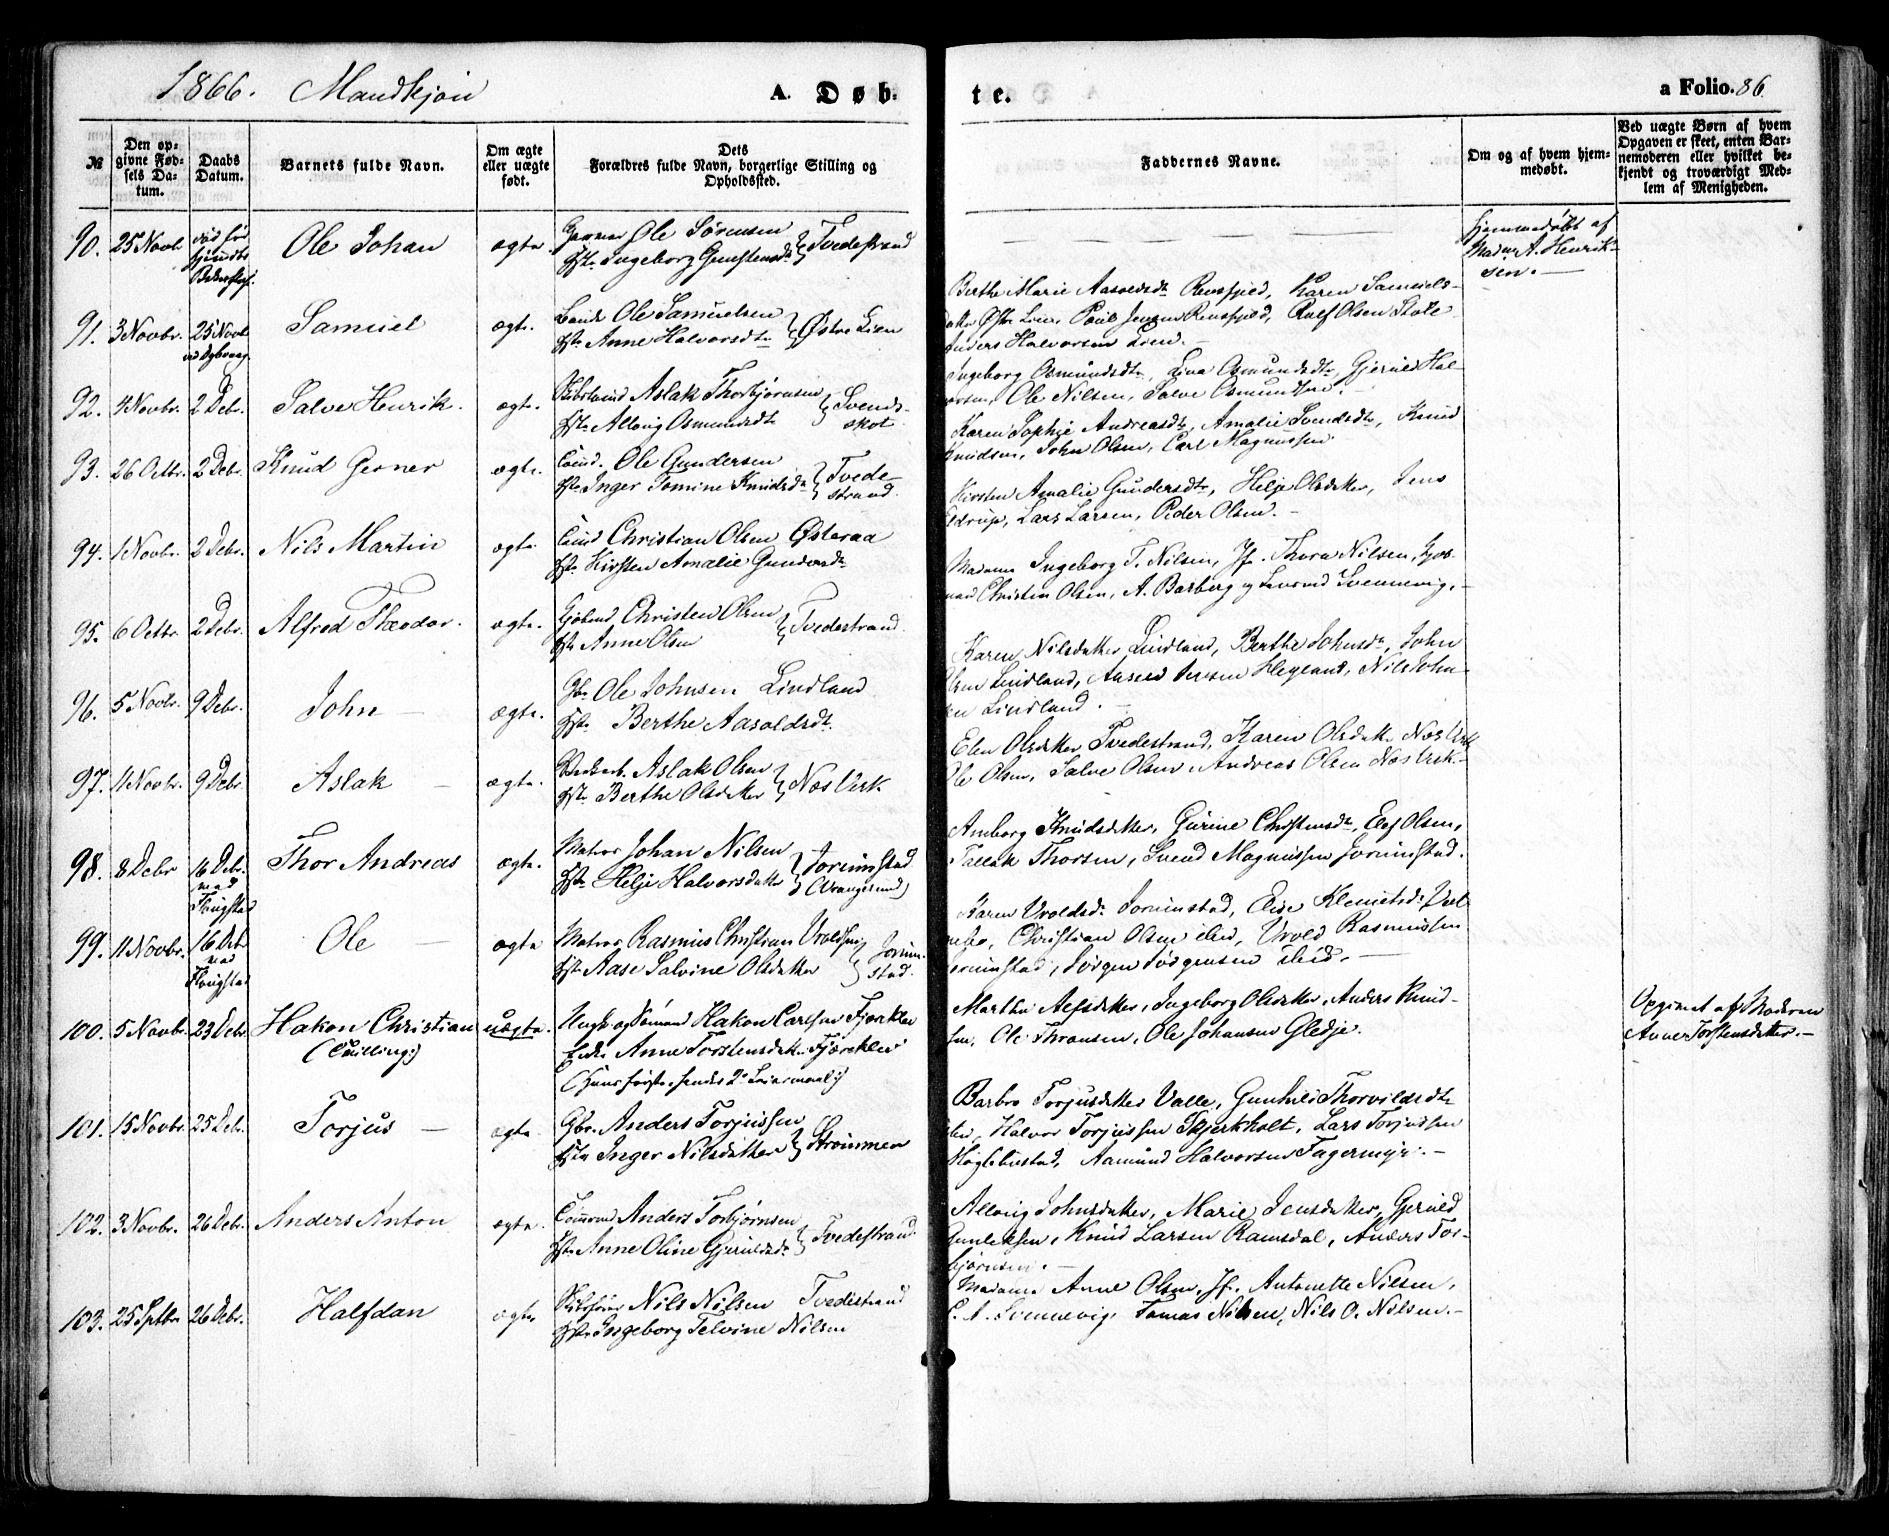 1866. Mandkjøn
A. Døb-
te.
a Folio. 86
№
Den op-
givne Fød-
sels Da-
tum.
Daabs
Datum.
Barnets fulde Navn.
Om ægte
eller uægte
født.
Dets
Forældres fulde Navn, borgerlige Stilling og
Opholdssted.
Faddernes Navne.
Om og af hvem hjem-
medøbt.
Ved uægte Børn af hvem
Opgaven er skeet, enten Bar-
nemoderen eller hvilket be-
kjendt og troværdigt Med-
lem af Menigheden.
90. 25 Novbr Ole Johan ægte Ole Sørensen
Ingeborg Gunstensdtr } Tvedestrand
Hjemmedøbt af
Madm A. Henrik-
sen. —
91. 3 Novbr. 25 Novb Samuel ægte. Ole Samuelsen
Anne Halvorsdtr } Østre Lien
Berthe Marie Karen Samuels-
datter Østre Lien, Poul Jensen Olsen
Anders Halvorsen Lien. —
92. 4 Novbr. 2 Debr. Salve Henrik. ægte. Aslak Thorbjørnsen
Hst. Allvig Osmundsdtr } Svends-
skot
Ingeborg Osmundsdtr, Lina Osmundsdtr, Gjeruld Hal-
vorsen, Ole Nilsen, Salve Osmundsen. —
93. 26 Octbr. 2 Debr. Knud Gerner ægte. Ole Gundersen
Hst. Inger Tomine Knudsdtr } Tvede-
strand.
Karen Sophie Andreasdtr, Amalie Svendsdtr, Knud
Knudsen, John Olsen, Carl Magnussen
94. 1 Novbr. 2 Debr. Nils Martin ægte. Christian Olsen Østeraa
Hst. Kirsten Amalie Gundersdtr
Kirsten Amalie Gundersdtr, Helje Olsdatter, Jens
Lars Larsen, Peder Olsen. —
95. 6 Octbr. 2 Debr. Alfred Theodor. ægte. Christen Olsen
Hst. Anne Olsen } Tvedestrand.
Madame Ingeborg T. Nilsen, Jf. Thora Nilsen,
Christen Olsen, A. Barberg og Svennevig. —
96. 5 Novbr. 9 Debr. John — ægte. Gbr. Ole Johnsen Lindland
Hst. Berthe Aasoldsdtr.
Karen Nilsdatter Lindland, Berthe Johnsdtr, John
Olsen Lindland, Jensen Hegland, Nils John-
sen Lindland. —
97. 11 Novbr. 9 Debr. Aslak — ægte. Aslak Olsen
Hst. Berthe Olsdatter } Næs Verk
Elen Olsdatter Tvedestrand, Karen Olsdatr. Næs Verk
Ole Olsen, Salve Olsen, Andreas Olsen Næs Verk. —
98. 8 Debr 16 Debr. Thor Andreas ægte. Matros Johan Nilsen
Hst. Helje Halvorsdatter } Jorunstad
(Vrangesund)
Amborg Knudsdatter, Gurine Christensdtr, Elef Olsen,
Tallak Thorsen, Svend Magnussen Jorunstad.
99. 11 Novbr. 16 Ole — ægte Matros Rasmus Christian Uroldsen
Hst. Aase Salvine Olsdatter } Jorun-
stad.
Karen Uroldsdr. Jorunstad, Elise Klemetsdr.
Christian Olsen ibid, Urold Rasmussen
Jorunstad, Jørgen Jørgensen ibid. —
100. 5 Novbr. 23 Debr Hakon Christian
(Tvilling:)
uægte. Ungk. og Sømand Hakon Carlsen
Anne Torstensdatter
(Hans første, hendes 2. Leiermaal:)
Marthe Olsdatter, Ingeborg Olsdatter, Anders Knud-
sen, Ole Thronsen, Ole Johansen Gledje.
Opgivet af Moderen
Anne Torstensdatter. —
101. 15 Novbr. 25 Debr. Torjus — ægte. Gbr. Anders Torjussen
Hst. Inger Nilsdatter } Strømmen
Barbro Torjusdatter Valle, Gunhild Thorvildsdtr
ibid, Halvor Torjussen Skjerkholt, Lars Torjussen
Aamund Halvorsen Fagermyr. —
102. 3 Novbr. 26 Debr. Anders Anton ægte. Anders Torbjørnsen
Hst. Anne Oline Gjeruldsdr } Tvedestrand.
Allvig Johnsdatter, Marie Jensdatter, Gjeruld
Gunleksen, Knud Larsen Ramsdal, Anders Tor-
bjørnsen. —
103. 25 Septbr 26 Debr. Halfdan ægte Nils Nilsen Tvedestrand
Hst. Ingeborg Telvine Nilsen
Madame Anne Olsen, Jf. Antonette Nilsen,
Svennevig, Tomas Nilsen, Nils O. Nilsen. —